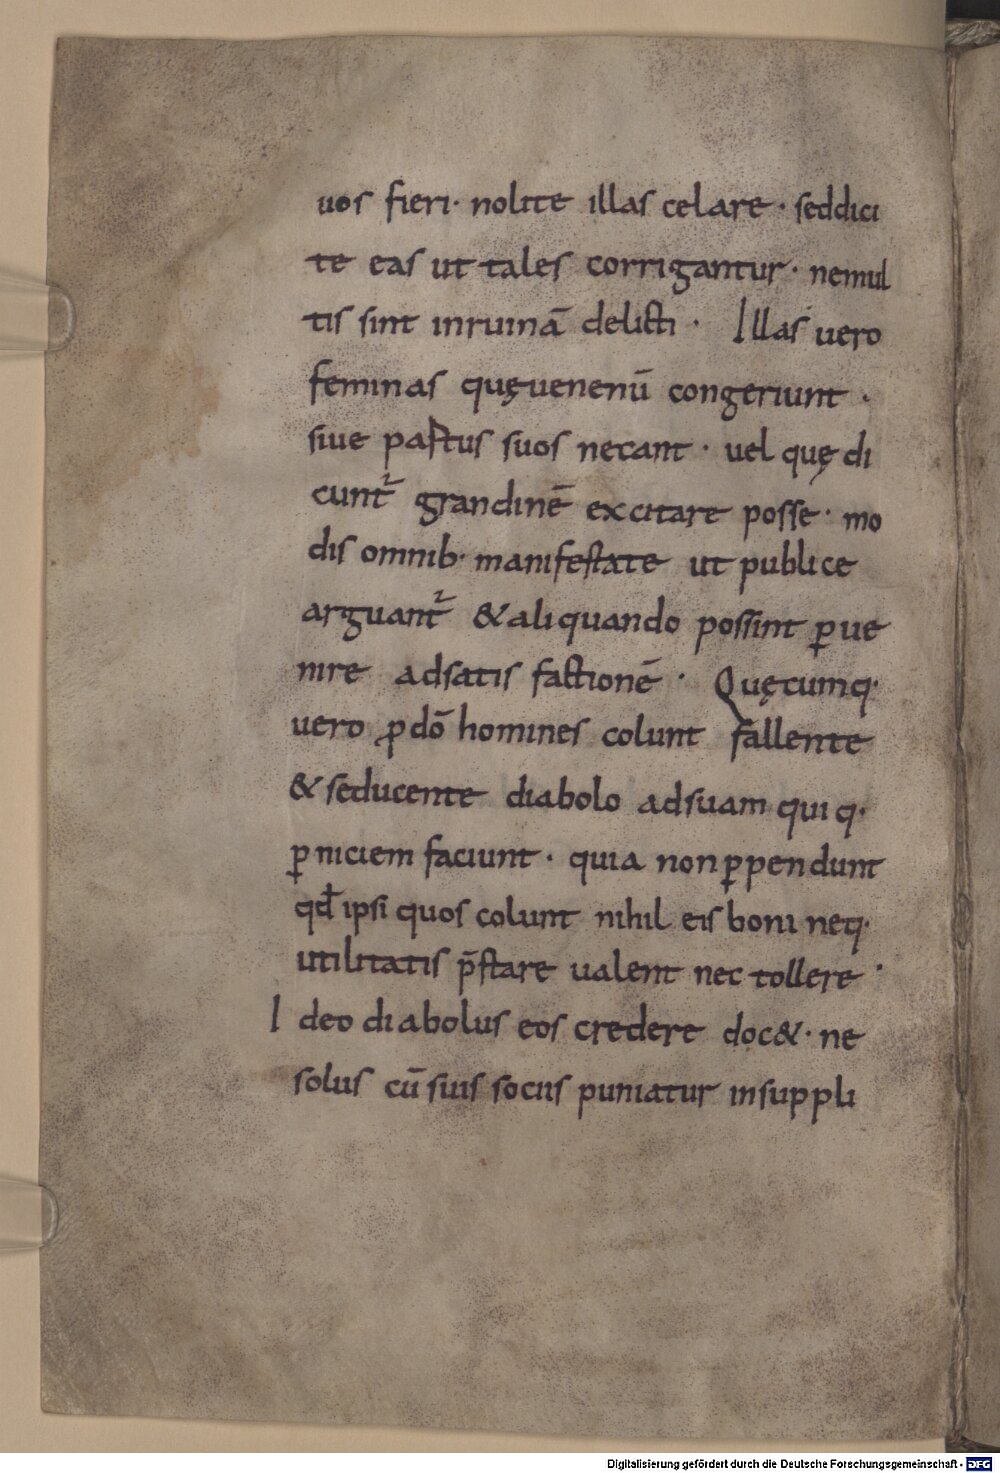 uos fieri· nolite illas celare· seddici
te eas ut tales corrigantur· nemul
tis sint inruinā delicti· Illas uero
feminas quęuenenū congeriunt·
siue pastus suos necant· uel quę di
cunt᷑ grandinē excitare posse· mo
dis omnib· manifestate ut publice
arguant᷑ &aliquando possint ꝑue
nire adsatis factionē· Quęcumq·
uero ꝓdō homines colunt fallente
&seducente diabolo adsuam quiq·
ꝑniciem faciunt· quia nonꝑpendunt
qđ ipsi quos colunt nihil eis boni neq·
utilitatis p̄stare ualent nec tollere·
Ideo diabolus eos credere doc&· ne
solus cū suis sociis puniatur insuppli
Digitalisierung gefördert durch die Deutsche Forschungsgemeinschaft - DFG